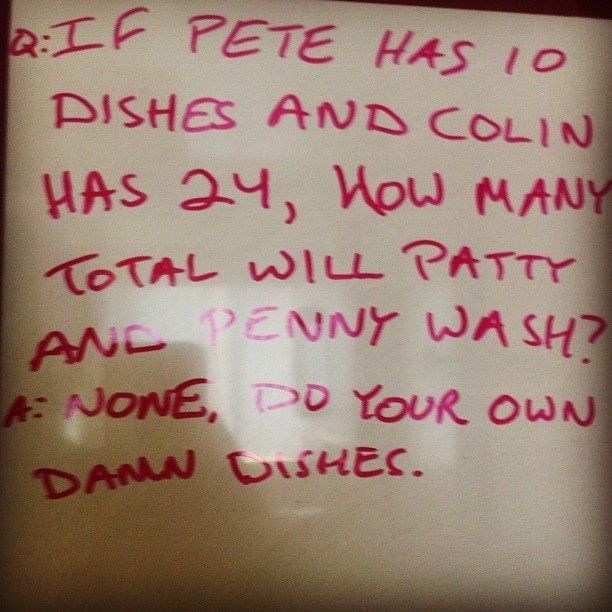 Q: IF PETE HAS 10
DISHES AND COLIN
HAS 24, HOW MANY
TOTAL WILL PATTY
AND PENNY WASH?
A: NONE, DO YOUR OWN
DAMN DISHES.